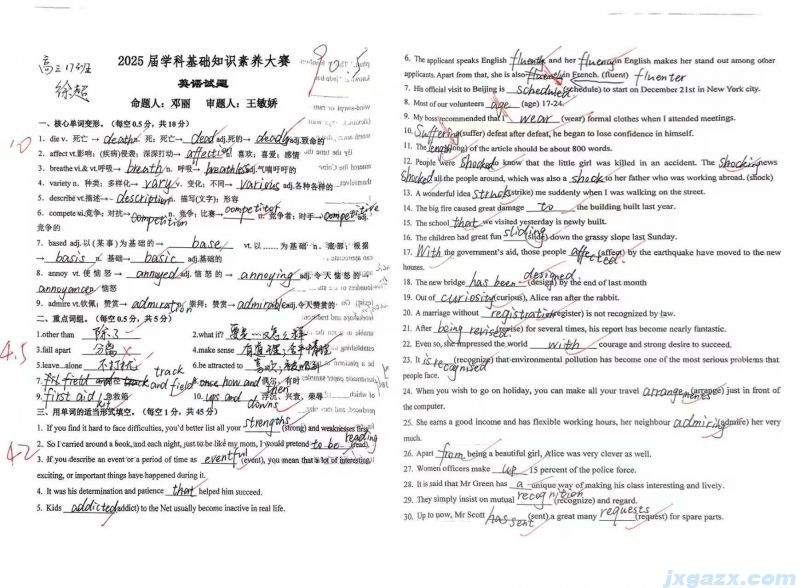 2025 届学科基础知识素养大赛
高三17班
徐超
英语试题
90.5
命题人：邓丽 审题人：王敏娇
一、核心单词变形。（每空0.5分，共10分）
10
1. die v. 死亡→ death n. 死；死亡→ dead adj.死的→ deadly adj.致命的
2. affect vt.影响；(疾病)侵袭；深深打动→ affection n. 喜欢；喜爱；感情
3. breathe vi.& vt.呼吸→ breath n. 呼吸→ breathless adj.气喘吁吁的
4. variety n. 种类；多样化→ vary v. 变化；不同→ various adj.各种各样的
5. describe vt.描述→ description n. 描写(文字)；形容
6. compete vi.竞争；对抗→ competition n. 竞争；比赛→ competitor n. 竞争者；对手→ competitive adj.
竞争的
7. based adj.以(某事)为基础的→ base vt. 以……为基础 n. 底部；根据
→ basis n. 基础→ basic adj.基础的
8. annoy vt. 使恼怒→ annoyed adj. 恼怒的→ annoying adj.令人恼怒的→
annoyance n.恼怒
9. admire vt.钦佩；赞赏→ admiration n. 崇拜；赞赏→ admirable adj.令人赞赏的
二、重点词组。（每空0.5分，共5分）
4.5
1.other than 除了 2.what if?
3.fall apart 4.make sense 有道理；
5.leave alone 6.be attracted to
7. track and field 8. once now and then 偶尔，有时
9. first aid kit 急救箱 10. ups and downs 浮沉，兴衰，荣辱
三、用单词的适当形式填空。（每空1分，共45分）
42
1. If you find it hard to face difficulties, you'd better list all your strengths (strong) and weaknesses first.
2. So I carried around a book, and each night, just to be like my mom, I would pretend to be reading (read).
3. If you describe an event or a period of time as eventful (event), you mean that a lot of interesting,
exciting, or important things have happened during it.
4. It was his determination and patience that helped him succeed.
5. Kids addicted (addict) to the Net usually become inactive in real life.
6. The applicant speaks English fluently and her fluency in English makes her stand out among other
applicants. Apart from that, she is also in French. (fluent) fluenter
7. His official visit to Beijing is scheduled (schedule) to start on December 21st in New York city.
8. Most of our volunteers age (age) 17-24.
9. My boss recommended that I wear (wear) formal clothes when I attended meetings.
10. Suffering (suffer) defeat after defeat, he began to lose confidence in himself.
11. The (long) of the article should be about 800 words.
12. People were shocked to know that the little girl was killed in an accident. The shocking news
shocked all the people around, which was also a shock to her father who was working abroad. (shock)
13. A wonderful idea struck (strike) me suddenly when I was walking on the street.
14. The big fire caused great damage to the building built last year.
15. The school that we visited yesterday is newly built.
16. The children had great fun sliding (slide) down the grassy slope last Sunday.
17. With the government's aid, those people affected (affect) by the earthquake have moved to the new
houses.
18. The new bridge has been designed (design) by the end of last month
19. Out of curiosity (curious), Alice ran after the rabbit.
20. A marriage without registration (register) is not recognized by law.
21. After being revised (revise) for several times, his report has become nearly fantastic.
22. Even so, she impressed the world with courage and strong desire to succeed.
23. It is recognised (recognize) that environmental pollution has become one of the most serious problems that
people face.
24. When you wish to go on holiday, you can make all your travel arrangements (arrange) just in front of
the computer.
25. She earns a good income and has flexible working hours, her neighbour admiring (admire) her very
much.
26. Apart from being a beautiful girl, Alice was very clever as well.
27. Women officers make up 15 percent of the police force.
28. It is said that Mr Green has a unique way of making his class interesting and lively.
29. They simply insist on mutual recognition (recognize) and regard.
30. Up to now, Mr Scott has sent (sent) a great many requests (request) for spare parts.
jxgazx.com